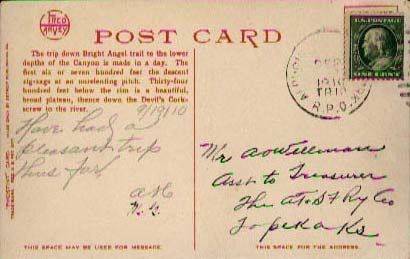 FRED
HARVEY
POST CARD
The trip down Bright Angel trail to the lower
depths of the Canyon is made in a day. The
first six or seven hundred feet the descent
zig-zags at an unrelenting pitch. Thirty-four
hundred feet below the rim is a beautiful,
broad plateau, thence down the Devil's Cork-
screw to the river.
9/19/10
Have had a
pleasant trip
thus far.
U.S. POSTAGE
ONE CENT
1910
R.P.O.
Mr A Wellman
Asst to Treasurer
The AT&SF Ry Co
Topeka Ks
THIS SPACE MAY BE USED FOR MESSAGE.
THIS SPACE FOR THE ADDRESS.